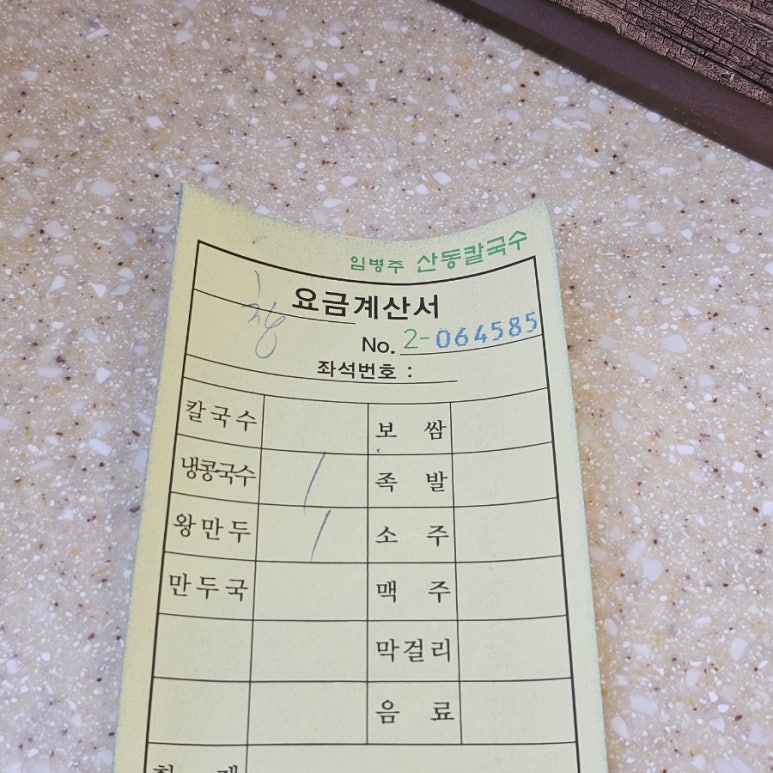 임병주 산동칼국수
요금계산서
No. 2-064585
좌석번호 :
칼국수 보 쌈
냉콩국수 / 족 발
왕만두 / 소 주
만두국 맥 주
막걸리
음 료